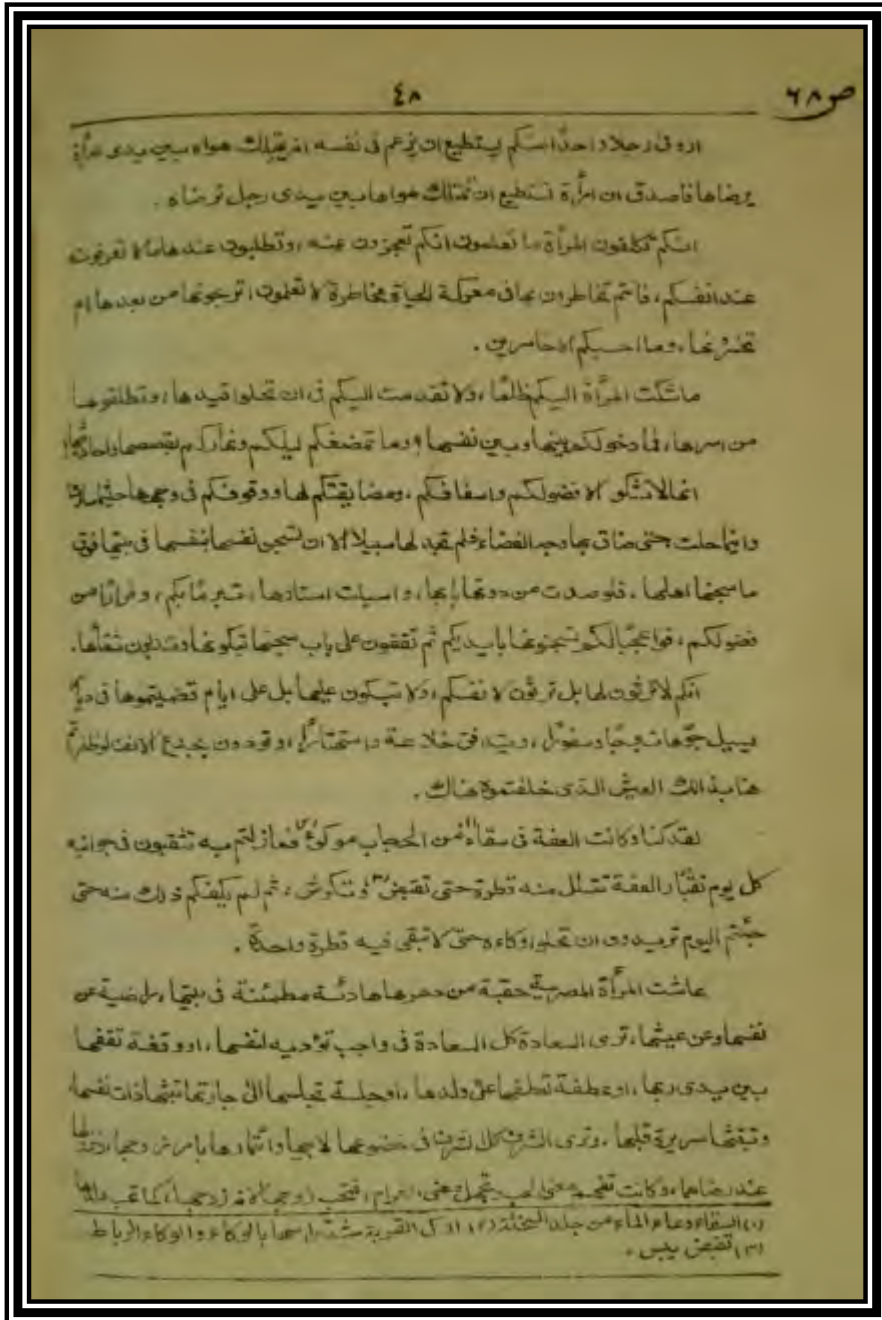 ٤٨
ص ٦٨
اروني رجلا واحدًا منكم يستطيع ان يزعم في نفسه انه يمتلك هواه بين يدى امرأة
يرضاها فاصدق ان امرأة تستطيع ان تمتلك هواها بين يدى رجل ترضاه .
انكم تكلفون المرأة ما تعلمون انكم تعجزون عنه ، وتطلبون عندها ما لا تعرفونه
عند انفسكم ، فانتم تخاطرون بها في معركة الحياة مخاطرة لا تعلمون ، اتربحونها من بعدها ام
تخسرونها ، وما احسبكم الا خاسرين .
ما شكت المرأة اليكم ظلمًا ، ولا تقدمت اليكم في ان تحلوا قيدها ، وتطلقوها
من اسرها ، فما دخولكم بينها وبين نفسها ؟ وما تمضغكم ليلكم ونهاركم بقصصها واحاديثها ؟
انها لا تشكو الا فضولكم واسفافكم ، ومضايقتكم لها ووقوفكم في وجهها حيثما سارت
واينما حلت حتى ضاق بها وجه الفضاء فلم تجد لها سبيلا الا ان تسجن نفسها بنفسها في بيتها فوق
ما سجنها اهلها ، فاوصدت من دونها بابها ، واسبلت استارها ، تبرمًا بكم ، وفرارًا من
فضولكم ، فواعجبا لكم تسجنونها بايديكم ثم تقفون على باب سجنها تبكونها وتندبون شقاءها .
انكم لا ترثون لها بل ترثون لانفسكم ، ولا تبكون عليها بل على ايام قضيتموها في ديار
يسيل جوها تبرجًا وسفورًا ، ويتدافق خلاعة واستهتارًا ، وتودون بجدع الانف لو ظفرتم
هنا بذالك العيش الذى خلفتموه هناك .
لقد كنا وكانت العفة في سقاء(١) من الحجاب موكوء(٢) فما زلتم به تثقبون في جوانبه
كل يوم ثقبًا والعفة تتسلل منه قطرة حتى تقبض(٣) وتكرش ، ثم لم يكفكم ذلك منه حتى
جئتم اليوم تريدون ان تحلوا وكاءه حتى لا تبقى فيه قطرة واحدة .
عاشت المرأة المصرية حقبة من دهرها هادئة مطمئنة في بيتها ، راضية عن
نفسها وعن عيشها ، ترى السعادة كل السعادة في واجب تؤديه لنفسها ، او وقفة تقفها
بين يدى ربها ، او عطفة تعطفها على ولدها ، او جلسة تجلسها الى جارتها تبثها ذات نفسها
وتبثها سريرة قبلها ، وترى الشرف كل الشرف في خضوعها لابيها وائتمارها بامر زوجها ونزولها
عند رضاهما ، وكانت تفهم معنى الحب وتجهل معنى الغرام ، فتحب زوجها لانه زوجها ، كما تحب ولدها
(١) السقاء وعاء الماء من جلد السخلة (٢) اوكى القربة شد رأسها بالوكاء والوكاء الرباط
(٣) تقبض يبس .